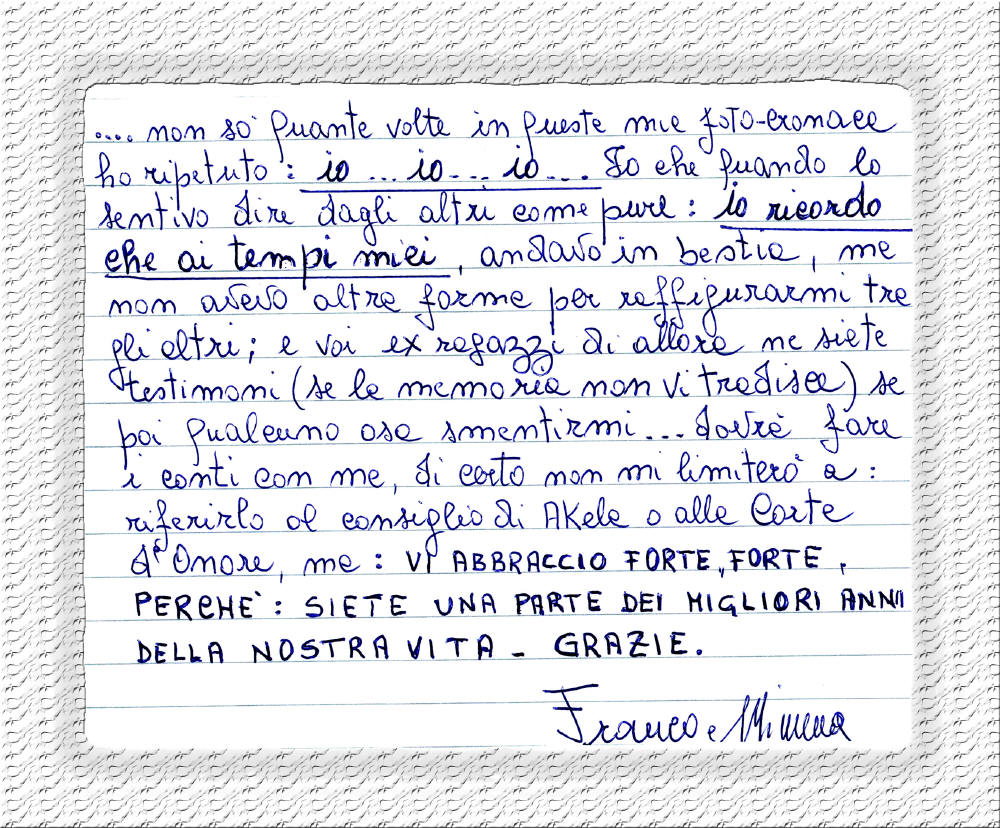 .... non so quante volte in queste mie foto-cronace
ho ripetuto : io ... io ... io ... Io che quando lo
sentivo dire dagli altri come pure : io ricordo
che ai tempi miei , andavo in bestia , ma
non avevo altre forme per raffigurarmi tra
gli altri ; e voi ex ragazzi di allora ne siete
testimoni ( se la memoria non vi tradisce ) se
poi qualcuno osa smentirmi ... dovrà fare
i conti con me , di certo non mi limiterò a :
riferirlo al consiglio di AKela o alla Corte
d'Onore , ma : VI ABBRACCIO FORTE , FORTE ,
PERCHE' : SIETE UNA PARTE DEI MIGLIORI ANNI
DELLA NOSTRA VITA - GRAZIE .
Franco e Mimma